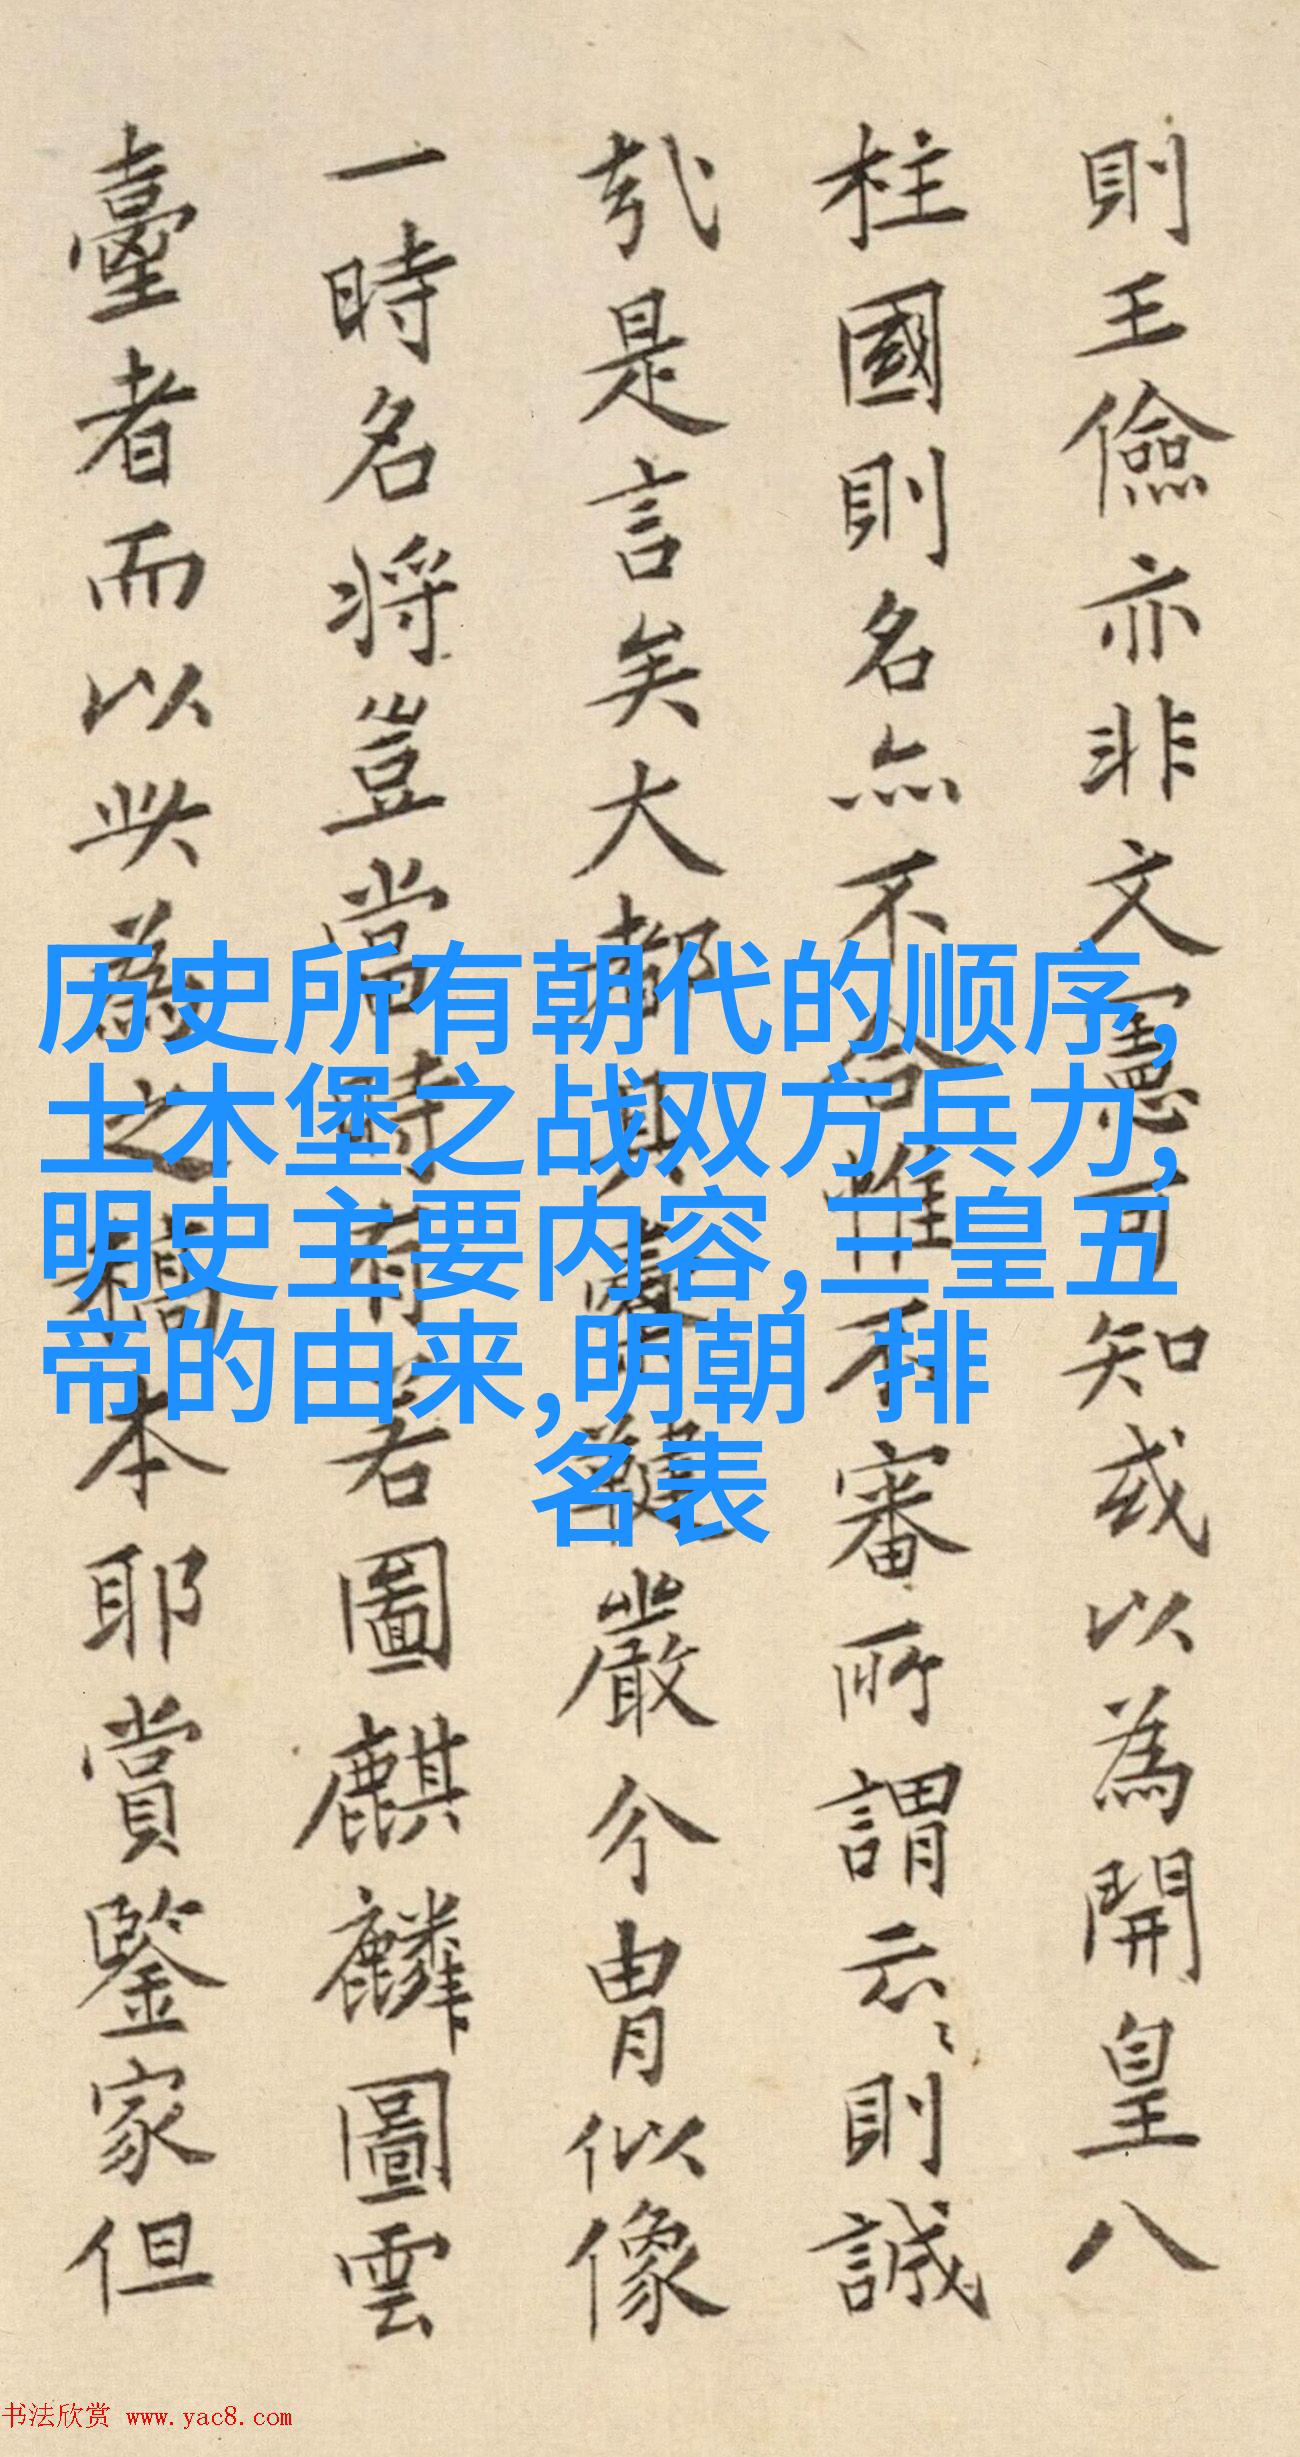 則王儉亦非文憲可知或以為開皇八
柱國則名亦不合惟不審所謂云〻則誠
哉是言矣大都其櫜鞬嚴介冑似像
一時名將豈當時有若圖麒麟圖雲
臺者而以此為之稿本耶賞鑒家但
历史所有朝代的顺序,
土木堡之战双方兵力,
明史主要内容,三皇五
帝的由来,明朝 排
名表
书法欣赏 www.yac8.com